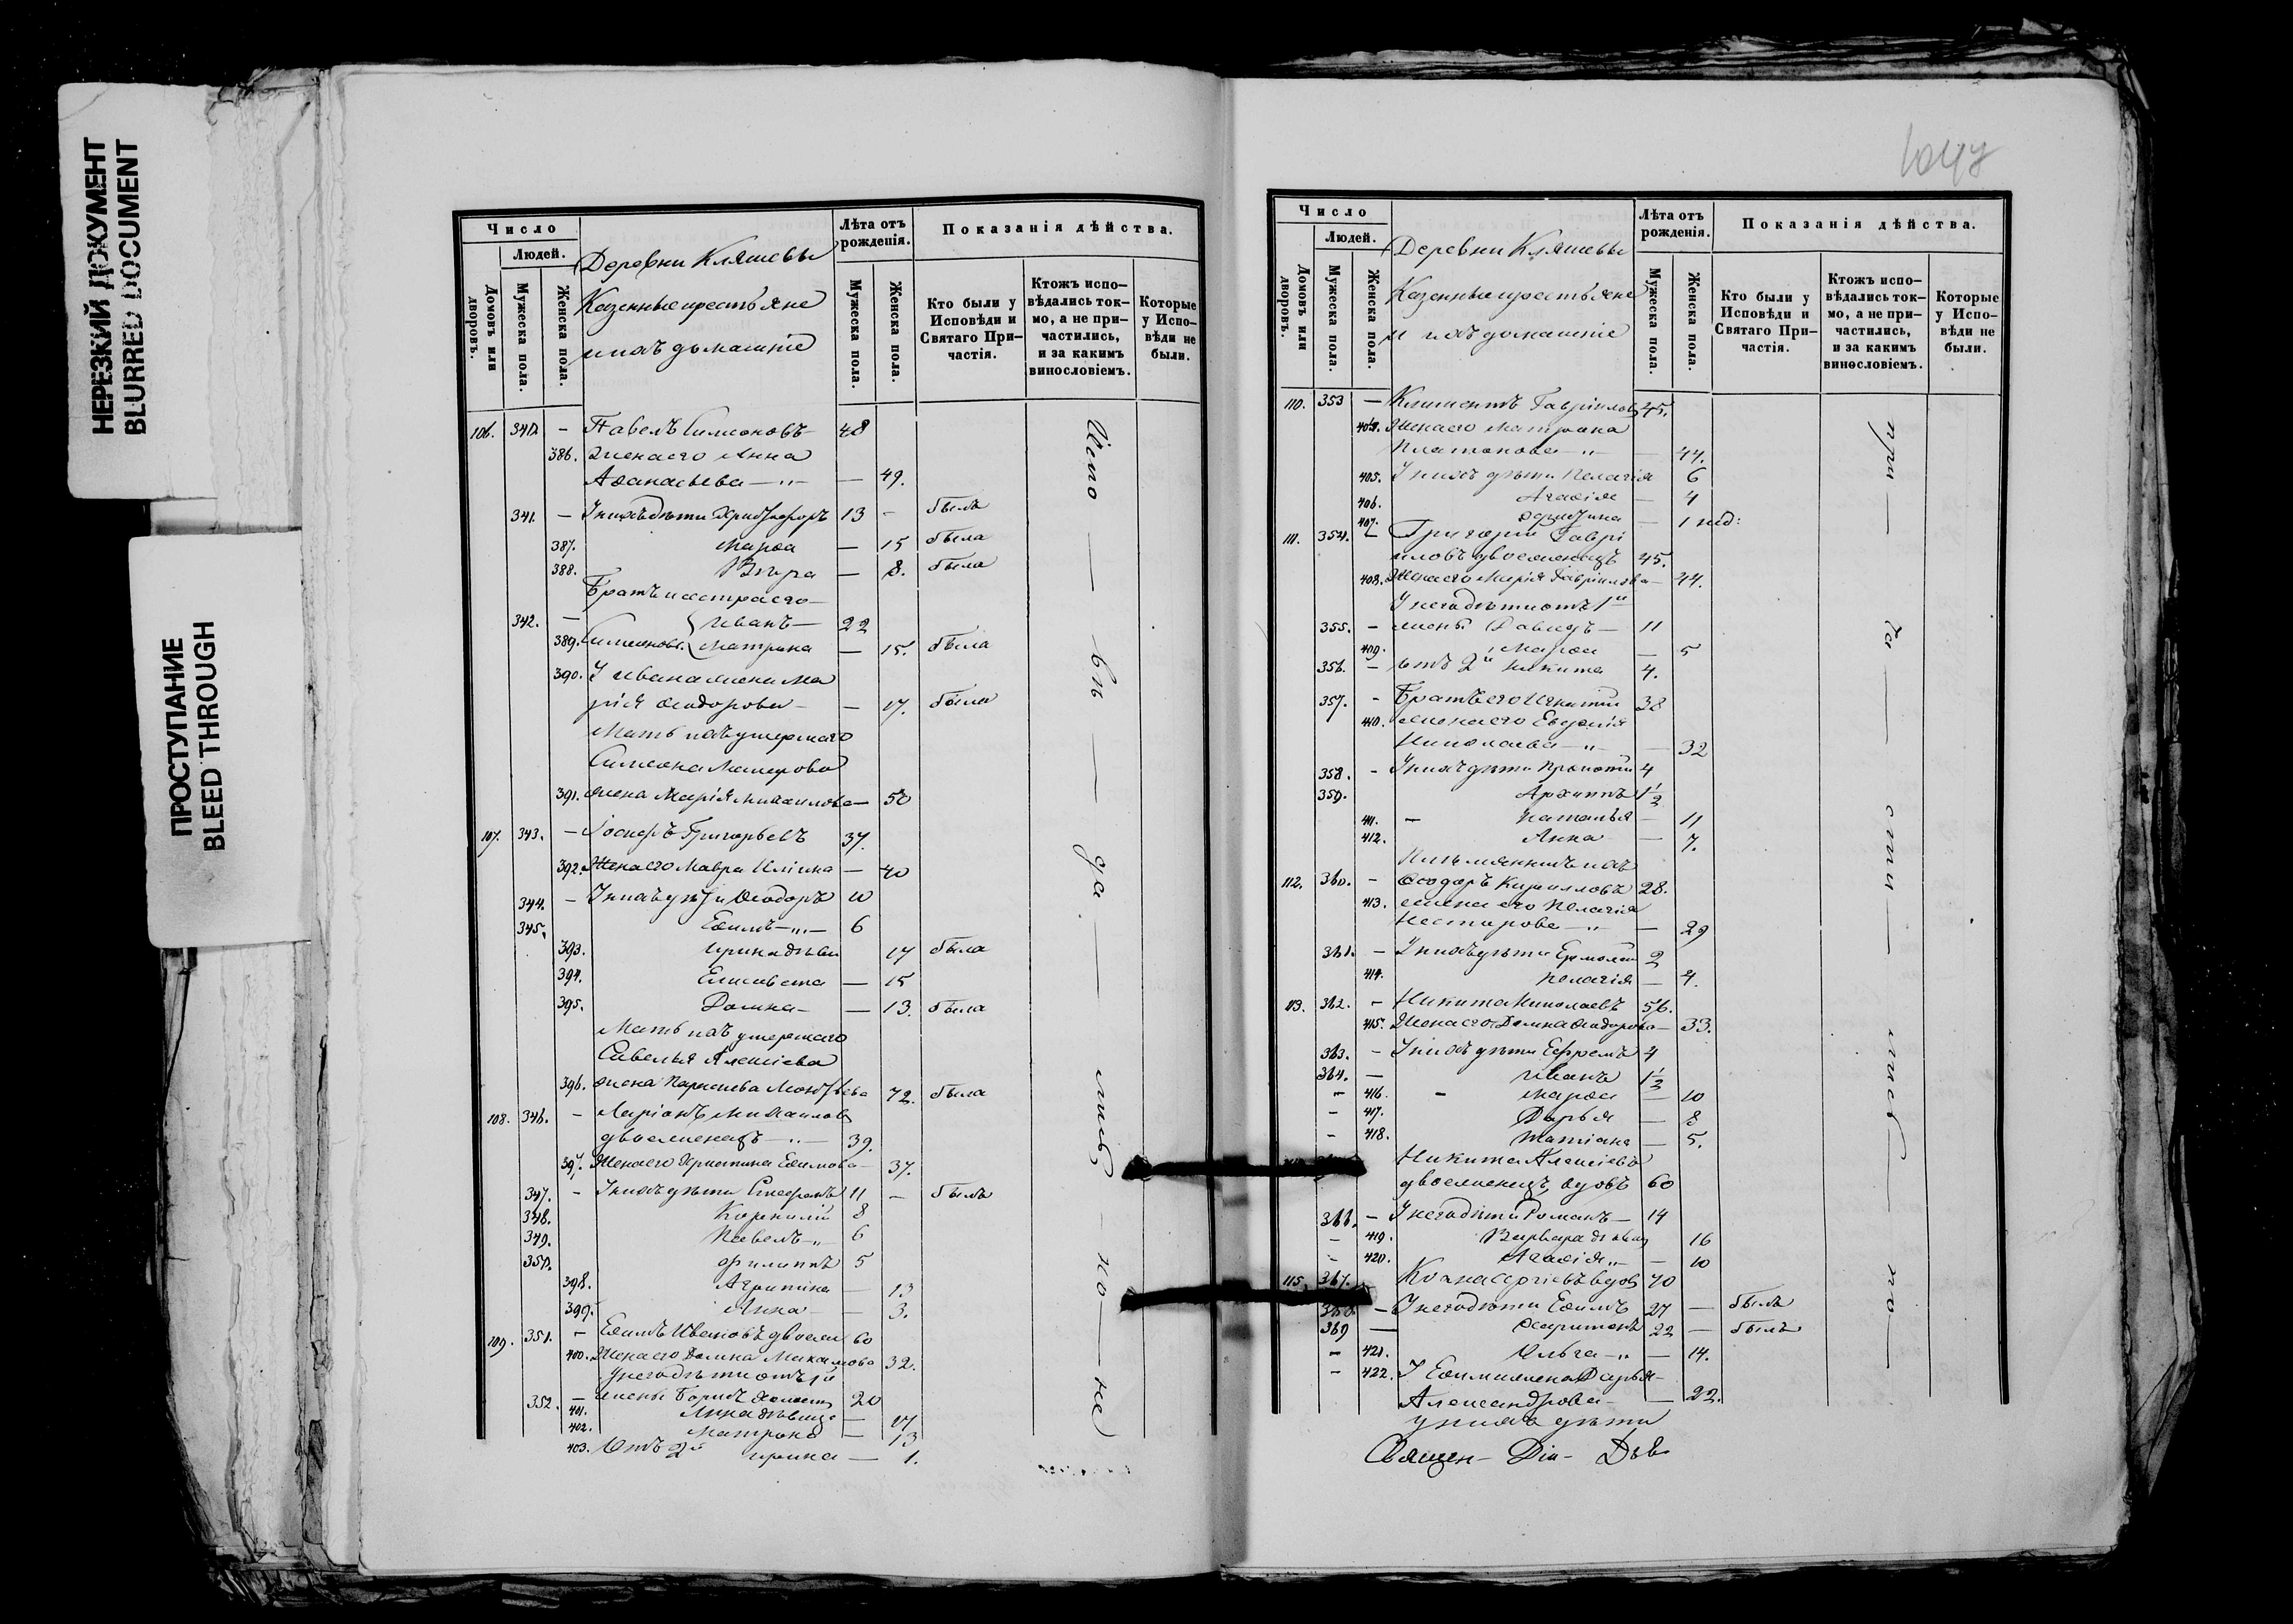 НЕРЕЗКИЙ ДОКУМЕНТ
BLURRED DOCUMENT
ПРОСТУПАНИЕ
BLEED THROUGH
Число
Людей.
Домовъ или дворовъ.
Мужеска пола.
Женска пола.
Деревни Кляшевы
Казенные крестьяне
и ихъ домашніе
Лѣта отъ рожденія.
Мужеска пола.
Женска пола.
Показанія дѣйства.
Кто были у Исповѣди и Святаго При-частія.
Ктожъ испо-вѣдались ток-мо, а не при-частились, и за какимъ винословіемъ.
Которые у Испо-вѣди не были.
106. 340. - Павелъ Симеоновъ- 48
386. Жена его Анна
Аѳанасьева - „ - — 49.
341. - У нихъ дѣти Христофоръ 13 - былъ
387. Марѳа — 15 была
388. Вѣра — 8. была
Братъ и сестра его -
342. - Иванъ - 22
389. Симеоновы. Матрона — 15. была
390. У Ивана жена Ма
рія Ѳеодорова - — 17. была
Мать ихъ умершаго
Симеона
391. жена Марія Михаилова — 50
107. 343. - Іосифъ Григорьевъ 37.
392. Жена его Мавра Иліина — 40
344. - У нихъ дѣти Ѳеодоръ 10
345. Еѳимъ - „ - 6
393. Ирина дѣви 17 была
394. Елисавета — 15
395. Домна - — 13. была
Мать ихъ умершаго
Савелья Алексіева
396. жена 72. была
108. 346. - Ларіонъ Михаиловъ
двоеженецъ - „ - 39.
397. Жена его Христина Еѳимова - 37.
347. - У нихъ дѣти Стефанъ 11 - былъ
348. Корнилій 8
349. Павелъ - „ 6
350. Филиппъ 5
398. Агрипина — 13
399. Анна - — 3.
109. 351. - Еѳимъ Ивановъ двоежен 60
400. Жена его Домна Максимова 32.
У него дѣти отъ 1й
352. - жены Борисъ холостъ 20
401. Анна дѣвица — 17
402. Матрона — 13
403. Отъ 2й Ирина — 1.
Число
Людей.
Домовъ или дворовъ.
Мужеска пола.
Женска пола.
Деревни Кляшевы
Казенные крестьяне
и ихъ домашніе
Лѣта отъ рожденія.
Мужеска пола.
Женска пола.
Показанія дѣйства.
Кто были у Исповѣди и Святаго При-частія.
Ктожъ испо-вѣдались ток-мо, а не при-частились, и за какимъ винословіемъ.
Которые у Испо-вѣди не были.
110. 353 - Климентъ Гавріиловъ 45.
404. Жена его Матрона
Платонова - „ - — 44.
405. У нихъ дѣти Пелагія 6
406. Агаѳія — 4
407. Христина — 1 нед:
111. 354. - Григорій Гаврі
иловъ двоеженецъ 45.
408. Жена его Марія Гавріилова - 44.
У него дѣти отъ 1й
355. - жены Давидъ - 11
409. Марѳа — 5
356. - отъ 2й Никита 4.
357. - Братъ его Игнатій 38
410. жена его Евдокія
Николаева - „ - — 32
358. - У нихъ дѣти Прокопій 4
359. Архиппъ 1½
411. - Наталья — 11
412. Анна — 7.
Племянникъ ихъ
112. 360. - Ѳеодоръ Кирилловъ 28.
413. жена его Пелагія
Несторова - „ - — 29
361. - У нихъ дѣти Ермолай 2
414. Пелагія — 4.
113. 362. - Никита Николаевъ 56.
415. Жена его Домна Ѳеодорова - 33.
363. - У нихъ дѣти Ефремъ 4
364. - Иванъ 1½
- 416. - Марѳа — 10
- 417. Дарья — 8
- 418. Татіана — 5.
Никита Алексіевъ
двоеженецъ, вдовъ 60
366. - У него дѣти Романъ - 14
- 419. Варвара дѣвиц 16
- 420. Агаѳія „ - — 10
115. 367. Козма Сергіевъ вдов 70
368. - У него дѣти Еѳимъ 27 - былъ
369 — Харитонъ 22 - былъ
- 421. Ольга - „ — 14.
- 422. У Еѳима жена Дарья -
Александрова - — 22.
у нихъ дѣти
Священ- Діа- Дѣв